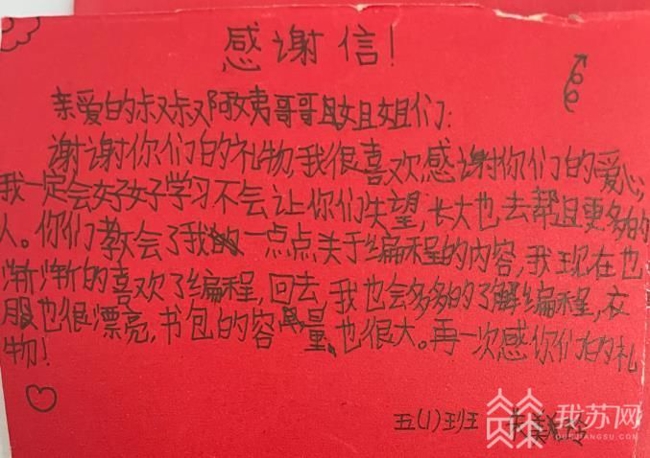 感谢信!
亲爱的叔叔阿姨哥哥姐姐们:
谢谢你们的礼物,我很喜欢,感谢你们的爱心,
我一定会好好学习不会让你们失望,长大也去帮且更多的
人。你们教会了我一点点关于编程的内容,我现在也
渐渐的喜欢了编程,回去,我也会多多的了解编程,衣
服也很漂亮,书包的容量,也很大。再一次感你们的礼
物!
五(1)班
我苏网
OURJIANGSU.COM